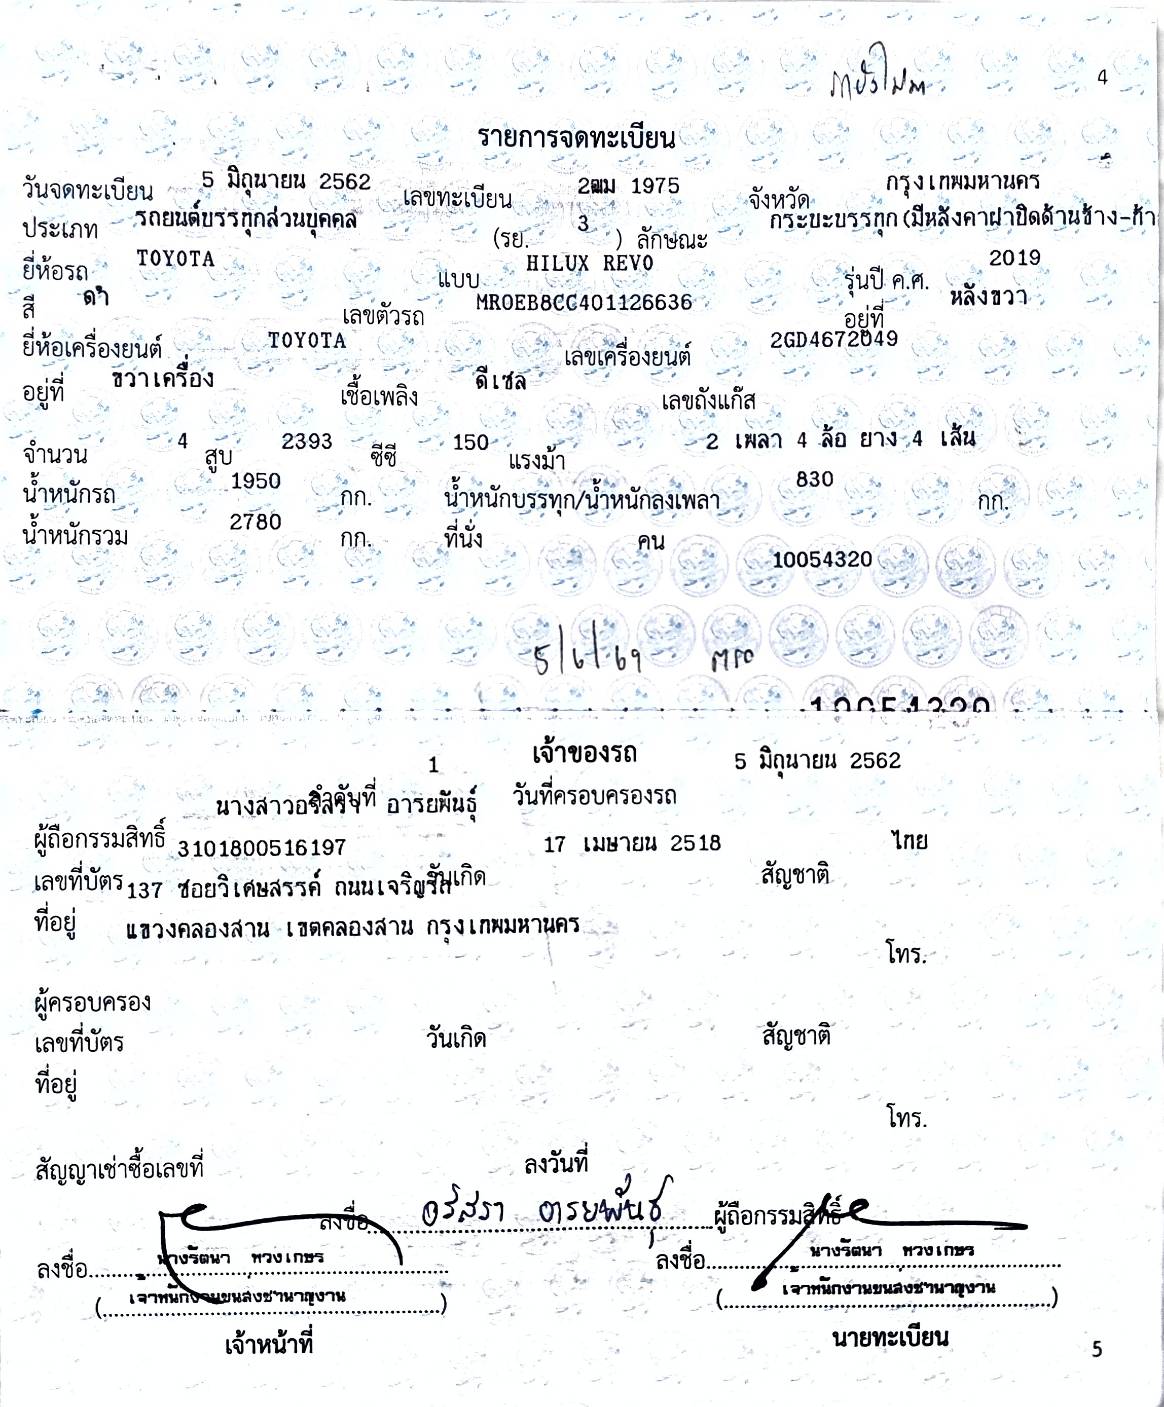 4
รายการจดทะเบียน
วันจดทะเบียน 5 มิถุนายน 2562 เลขทะเบียน 2ฒม 1975 จังหวัด กรุงเทพมหานคร
ประเภท รถยนต์บรรทุกส่วนบุคคล (รย. 3 ) ลักษณะ กระบะบรรทุก(มีหลังคาฝาปิดด้านข้าง-ท้า
ยี่ห้อรถ TOYOTA แบบ HILUX REVO รุ่นปี ค.ศ. 2019
สี ดำ เลขตัวรถ MR0EB8CC401126636 อยู่ที่ หลังขวา
ยี่ห้อเครื่องยนต์ TOYOTA เลขเครื่องยนต์ 2GD4672049
อยู่ที่ ขวาเครื่อง เชื้อเพลิง ดีเซล เลขถังแก๊ส
จำนวน 4 สูบ 2393 ซีซี 150 แรงม้า 2 เพลา 4 ล้อ ยาง 4 เส้น
น้ำหนักรถ 1950 กก. น้ำหนักบรรทุก/น้ำหนักลงเพลา 830 กก.
น้ำหนักรวม 2780 กก. ที่นั่ง คน
10054320
5/6/69
10054320
เจ้าของรถ
ลำดับที่ 1 วันที่ครอบครองรถ 5 มิถุนายน 2562
ผู้ถือกรรมสิทธิ์ นางสาวอริสรา อารยพันธุ์
เลขที่บัตร 3101800516197 วันเกิด 17 เมษายน 2518 สัญชาติ ไทย
ที่อยู่ 137 ซอยวิเศษสรรค์ ถนนเจริญรัถ
แขวงคลองสาน เขตคลองสาน กรุงเทพมหานคร
โทร.
ผู้ครอบครอง
เลขที่บัตร วันเกิด สัญชาติ
ที่อยู่
โทร.
สัญญาเช่าซื้อเลขที่ ลงวันที่
ลงชื่อ อริสรา อารยพันธุ์ ผู้ถือกรรมสิทธิ์
ลงชื่อ นางรัตนา ทวงเกษร ลงชื่อ นางรัตนา ทวงเกษร
(เจ้าพนักงานขนส่งชำนาญงาน) (เจ้าพนักงานขนส่งชำนาญงาน)
เจ้าหน้าที่ นายทะเบียน
5